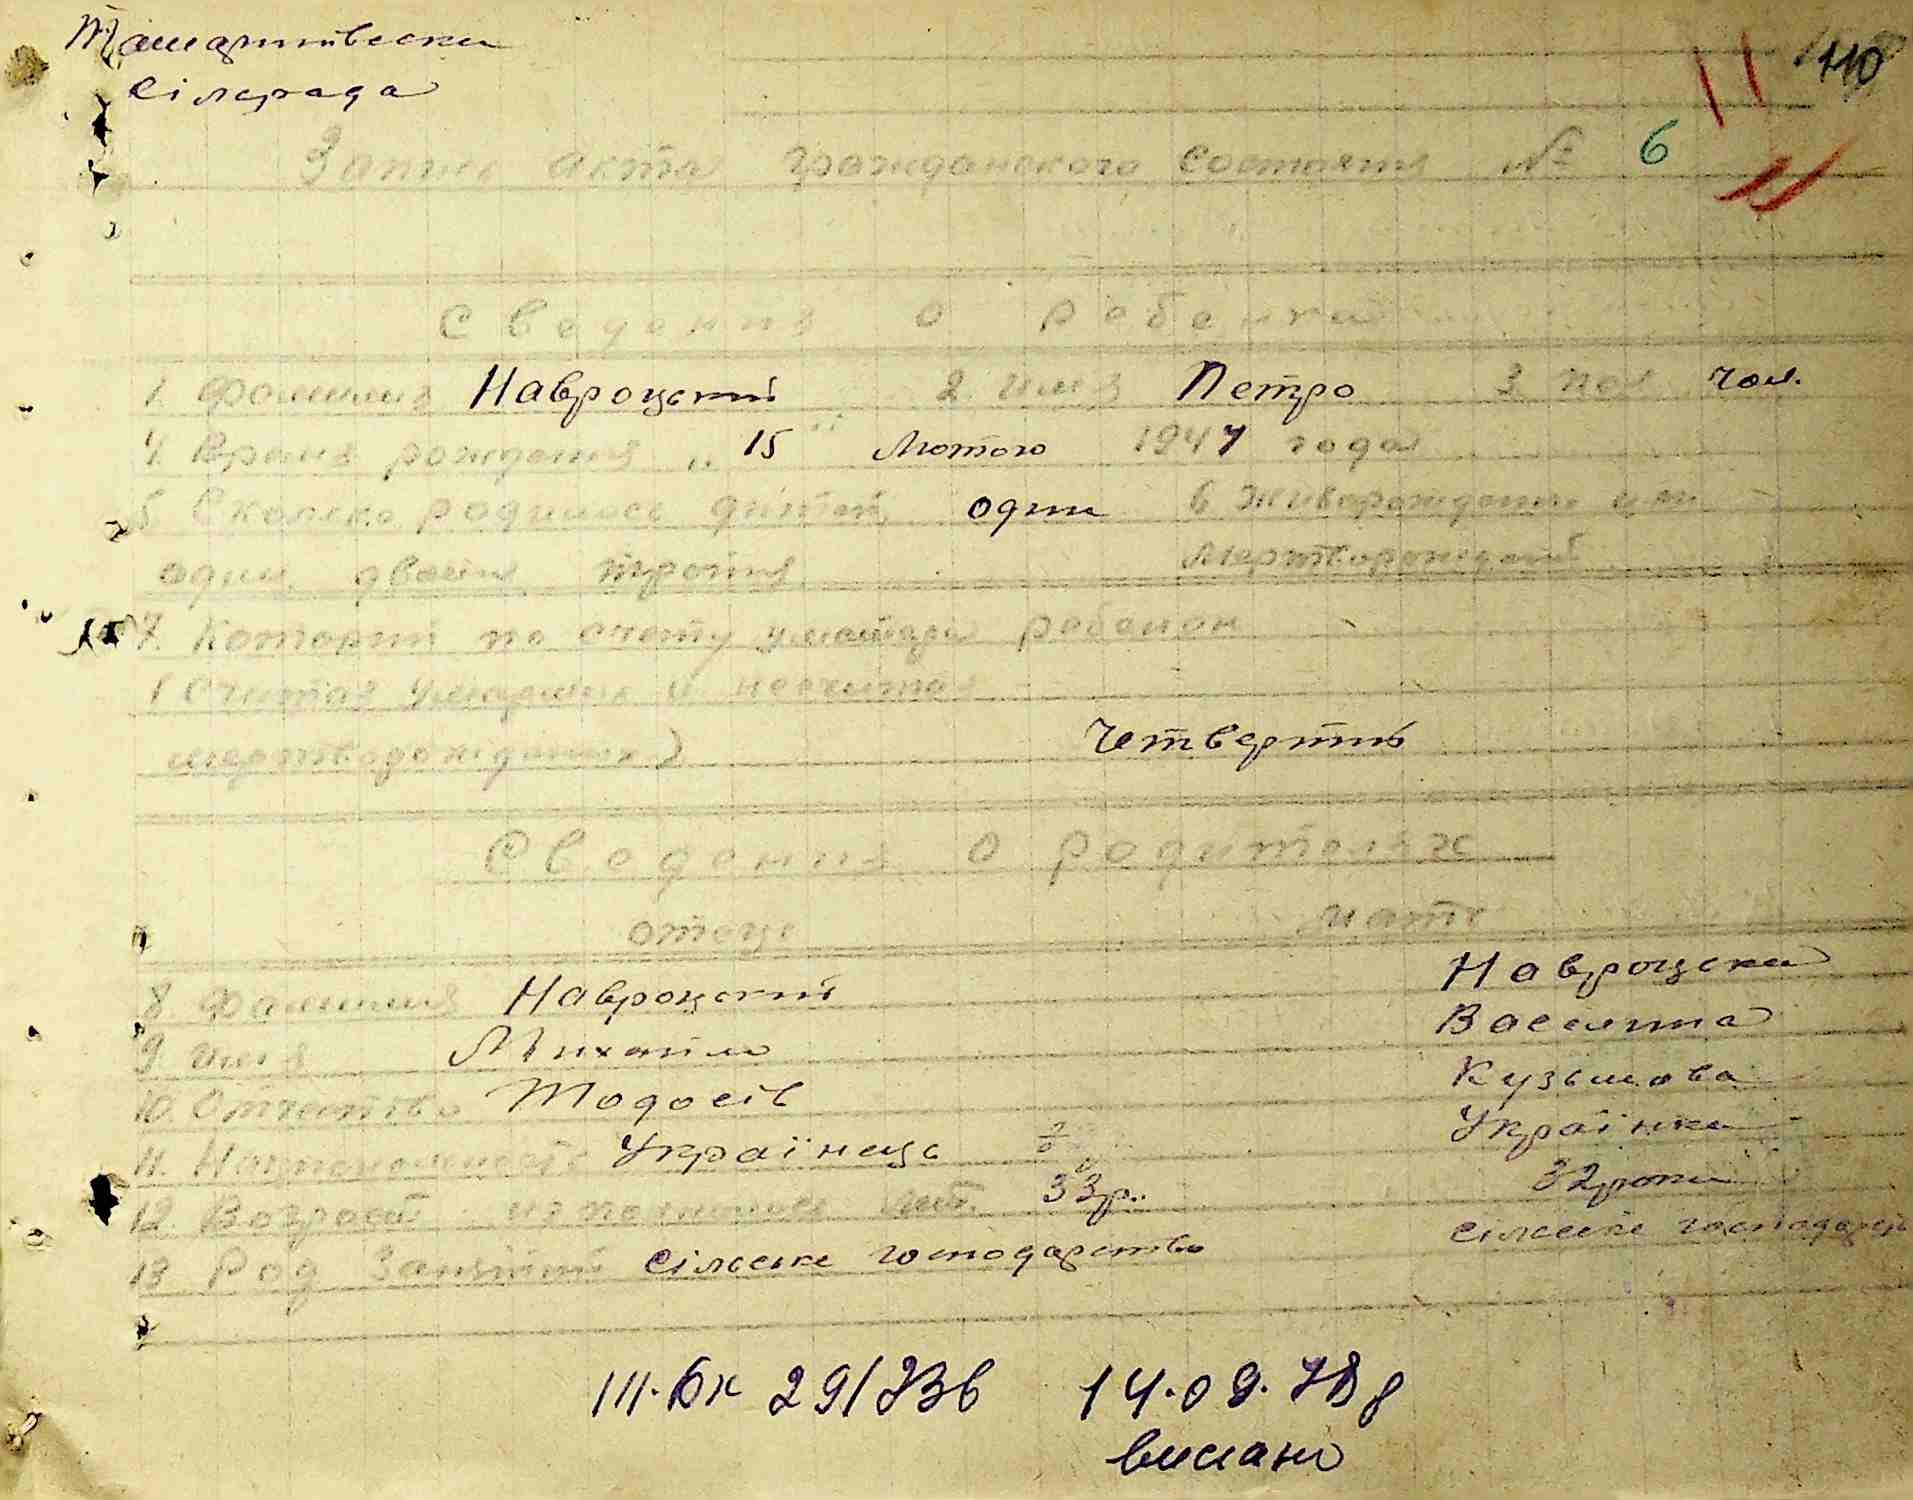 сільрада
110
11
Запись акта гражданского состояния № 6
Сведения о ребенке
1. Фамилия Навроцький 2. имя Петро 3. пол чол.
4. Время рождения „ 15 " Лютого 1947 года
5 Сколько родилось дитей один 6 живорожденн или
один двойня тройня мертворожденый
7. Которий по счету у матери ребенок
(Считая умерших и несчитая
мертворожденых) Четвертий
Сведения о родителях
отец мать
8. Фамилия Навроцький Навроцька
9. имя Михайло Василина
10. Отчество Тодосів Кузьмова
11. Национальность Українець Українка
12. Возраст исполнилось лет. 33р. 32 роки
13 Род Занятий сільське господарство сільське господарств
14.09.
вислано